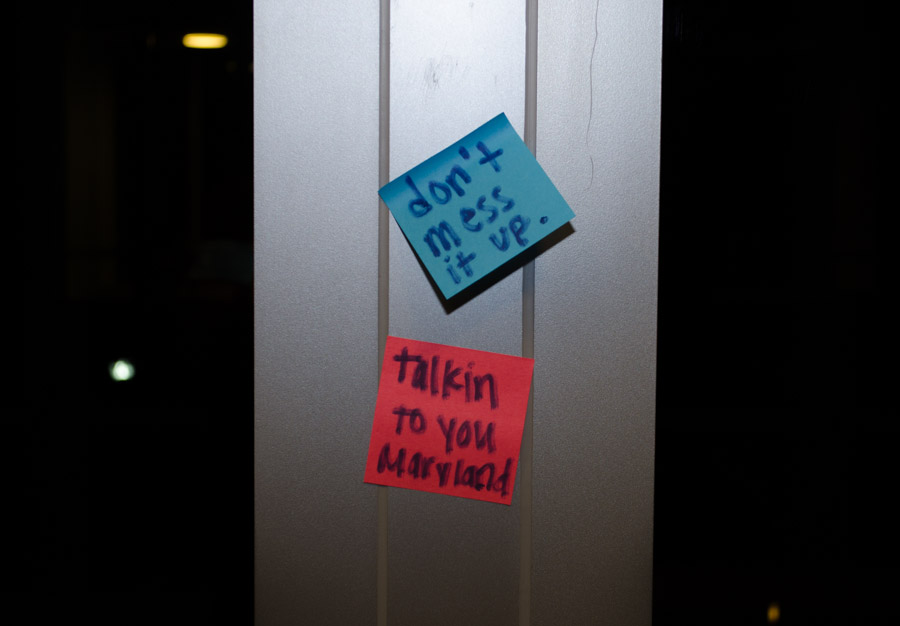 don't
mess
it up.
talkin
to you
Maryland